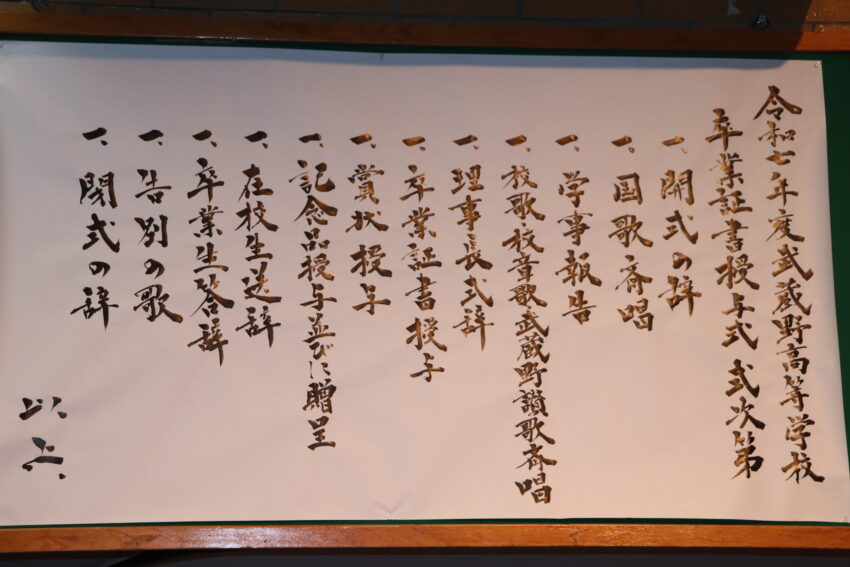 令和七年度武蔵野高等学校
卒業証書授与式 式次第
一、開式の辞
一、国歌斉唱
一、学事報告
一、校歌校音歌武蔵野讃歌斉唱
一、理事長式辞
一、卒業証書授与
一、賞状授与
一、記念品授与並びに贈呈
一、在校生送辞
一、卒業生答辞
一、告別の歌
一、閉式の辞
以上